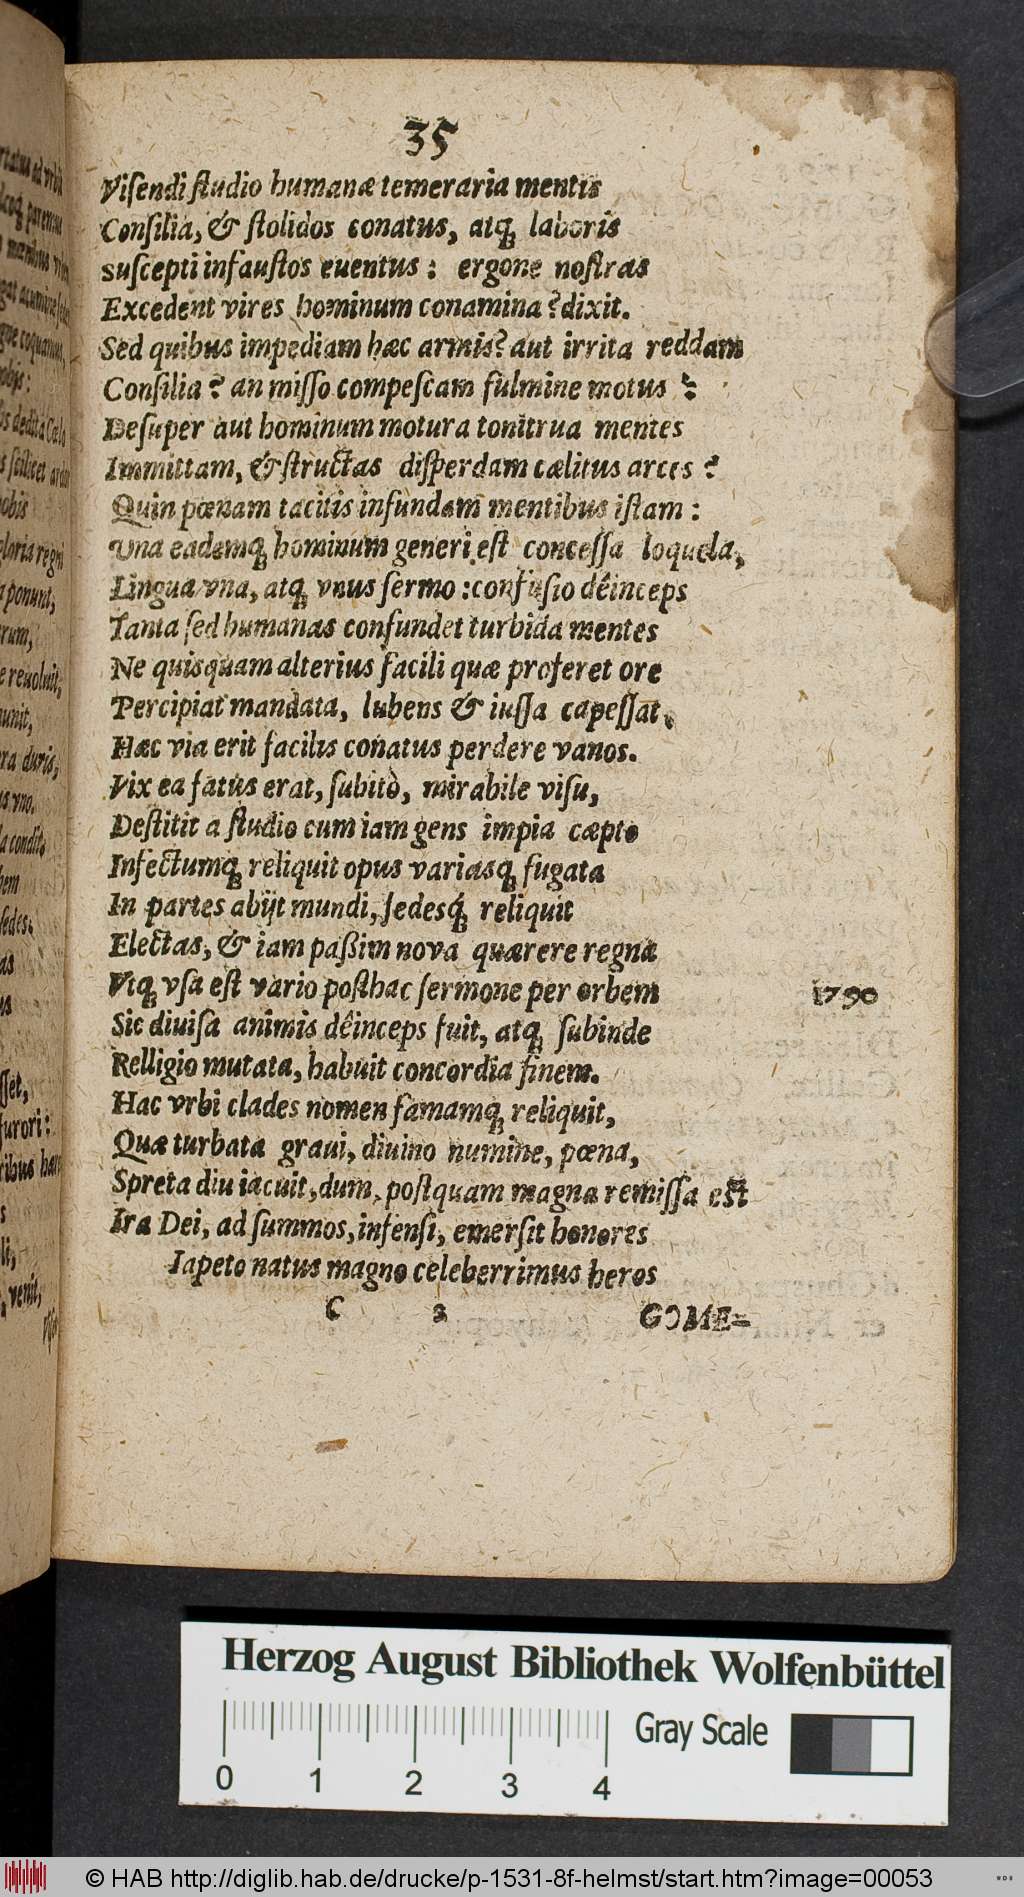 35
Viſendi ſtudio humanæ temeraria mentis
Conſilia, & ſtolidos conatus, atq; laboris
suſcepti infauſtos euentus: ergone noſtras
Excedent vires hominum conamina? dixit.
Sed quibus impediam hæc armis? aut irrita reddam
Conſilia? an miſſo compeſcam fulmine motus?
Deſuper aut hominum motura tonitrua mentes
Immittam, & ſtructas diſperdam cælitus arces?
Quin pœnam tacitis infundam mentibus iſtam:
Vna eademq; hominum generi eſt conceſſa loquela,
Lingua vna, atq; vnus ſermo: confuſio dêinceps
Tanta ſed humanas confundet turbida mentes
Ne quisquam alterius facili quæ proferet ore
Percipiat mandata, lubens & iuſſa capeſſat.
Hæc via erit facilis conatus perdere vanos.
Vix ea fatus erat, ſubitò, mirabile viſu,
Deſtitit a ſtudio cum iam gens impia cæpto
Infectumq; reliquit opus variasq; fugata
In partes abijt mundi, ſedesq́; reliquit
Electas, & iam paßim nova quærere regna
Viq; vſa eſt vario poſthac ſermone per orbem
1790
Sic diuiſa animis dêinceps fuit, atq; ſubinde
Relligio mutata, habuit concordia finem.
Hac vrbi clades nomen famamq; reliquit,
Quæ turbata graui, diuino numine, pœna,
Spreta diu iacuit, dum, poſtquam magna remiſſa eſt
Ira Dei, ad ſummos, infenſi, emerſit honores
Iapeto natus magno celeberrimus heros
C 2
GOME=
Herzog August Bibliothek Wolfenbüttel
Gray Scale
0 1 2 3 4
© HAB http://diglib.hab.de/drucke/p-1531-8f-helmst/start.htm?image=00053